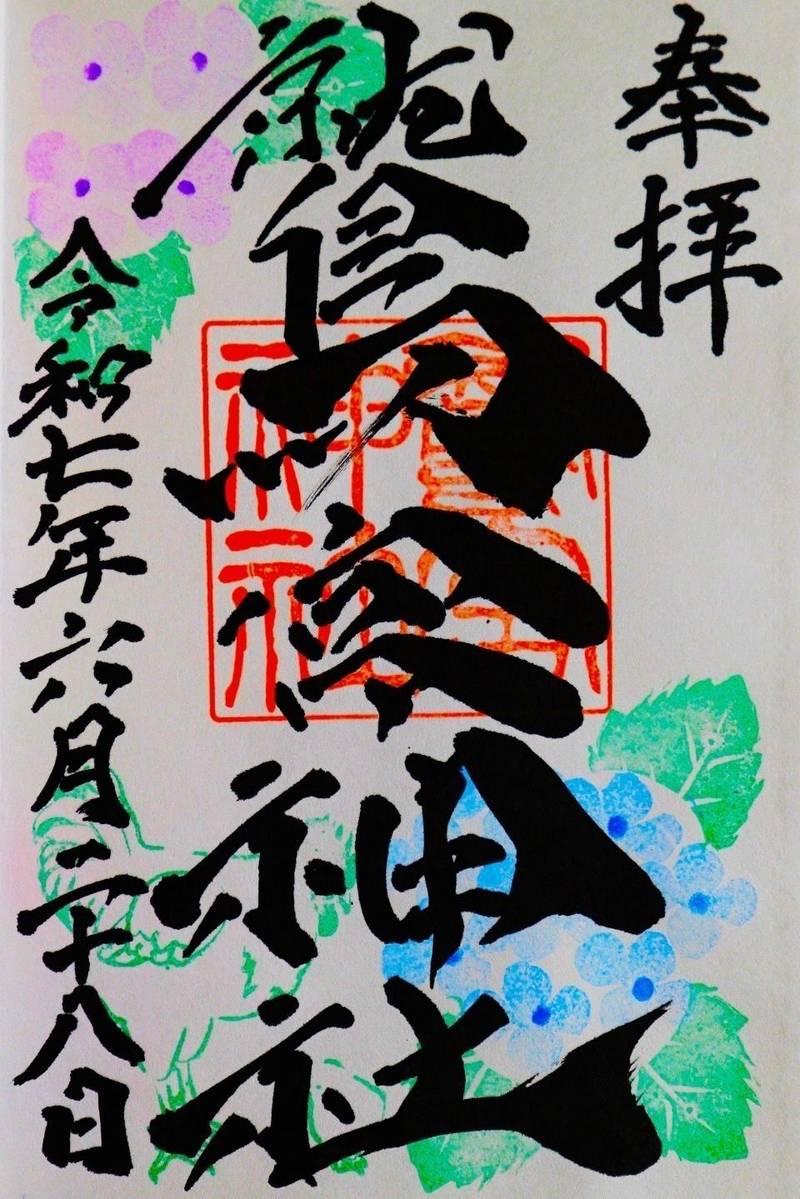 奉拝
鷲宮神社
令和七年六月二十八日